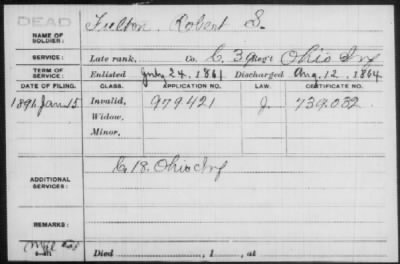 DEAD
NAME OF SOLDIER: Fulton, Robert S.
SERVICE: Late rank, Co. C. 39 Reg't Ohio Inf
TERM OF SERVICE: Enlisted July 24, 1861 Discharged Aug. 12, 1864
DATE OF FILING. CLASS. APPLICATION NO. LAW. CERTIFICATE NO.
1891 Jan 15 Invalid, 979421 J. 739.032.
Widow,
Minor,
ADDITIONAL SERVICES: C. 18. Ohio Inf
REMARKS:
Died , 1 , at